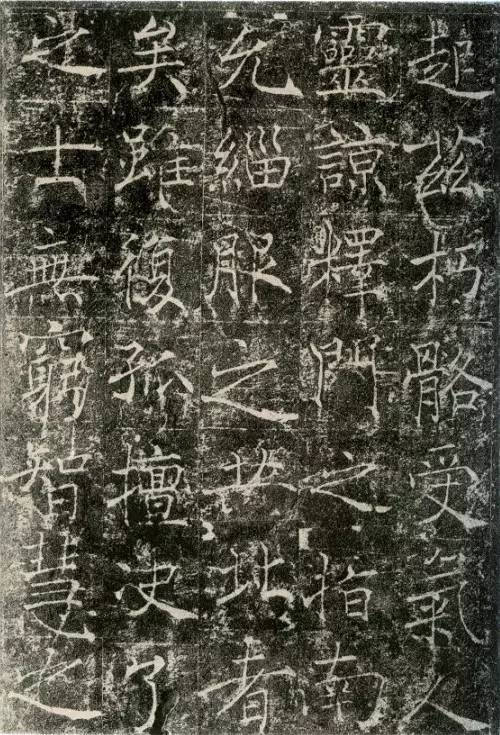 起茲朽骼受氣人
靈諒釋門之指南
允緇服之共北者
矣雖復孤擅決了
之士無窮智慧之